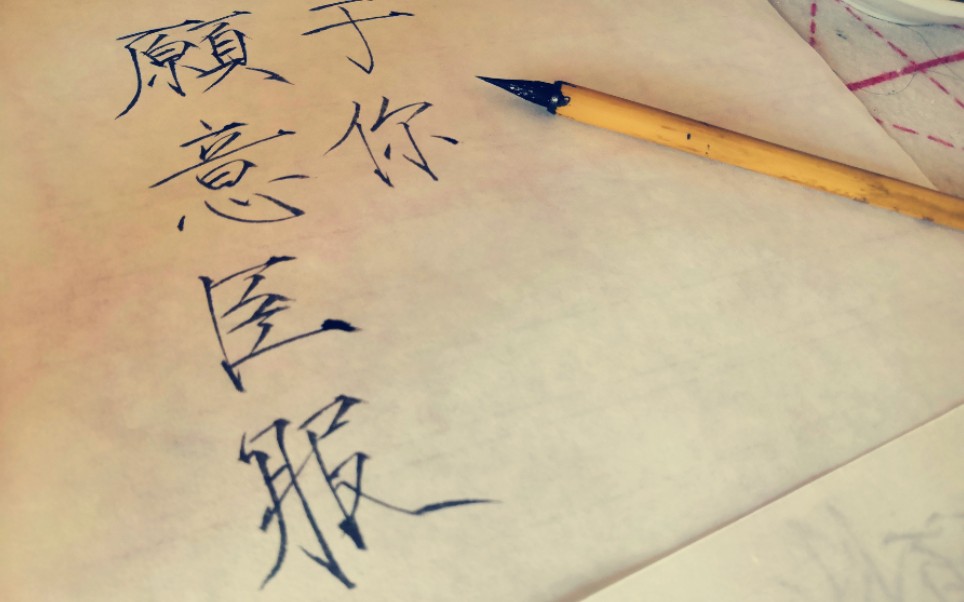 願意臣服
于你